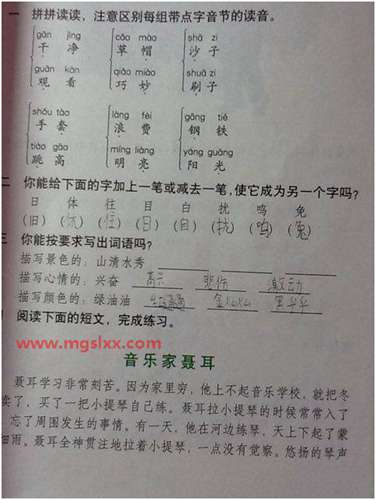 一 拼拼读读，注意区别每组带点字音节的读音。
gān jìng cǎo mào shā zi
干 净 草 帽 沙 子
guān kàn qiǎo miào shuā zi
观 看 巧 妙 刷 子
shǒu tào làng fèi gāng tiě
手 套 浪 费 钢 铁
tiào gāo míng liàng yáng guāng
跳 高 明 亮 阳 光
二 你能给下面的字加上一笔或减去一笔，使它成为另一个字吗？
日 体 往 目 白 扰 鸣 免
(旧) ( ) (住) (日) (自) (拢) (鸣) (兔)
三 你能按要求写出词语吗？
描写景色的：山清水秀
描写心情的：兴奋 高兴 悲伤 激动
描写颜色的：绿油油 金灿灿 黑乎乎
阅读下面的短文，完成练习。
www.mgslxx.com
音乐家聂耳
聂耳学习非常刻苦。因为家里穷，他上不起音乐学校，就把冬
卖了，买了一把小提琴自己练。聂耳拉小提琴的时候常常入了
忘了周围发生的事情。有一天，他在河边练琴，天上下起了蒙
细雨。聂耳全神贯注地拉着小提琴，一点没有觉察。悠扬的琴声